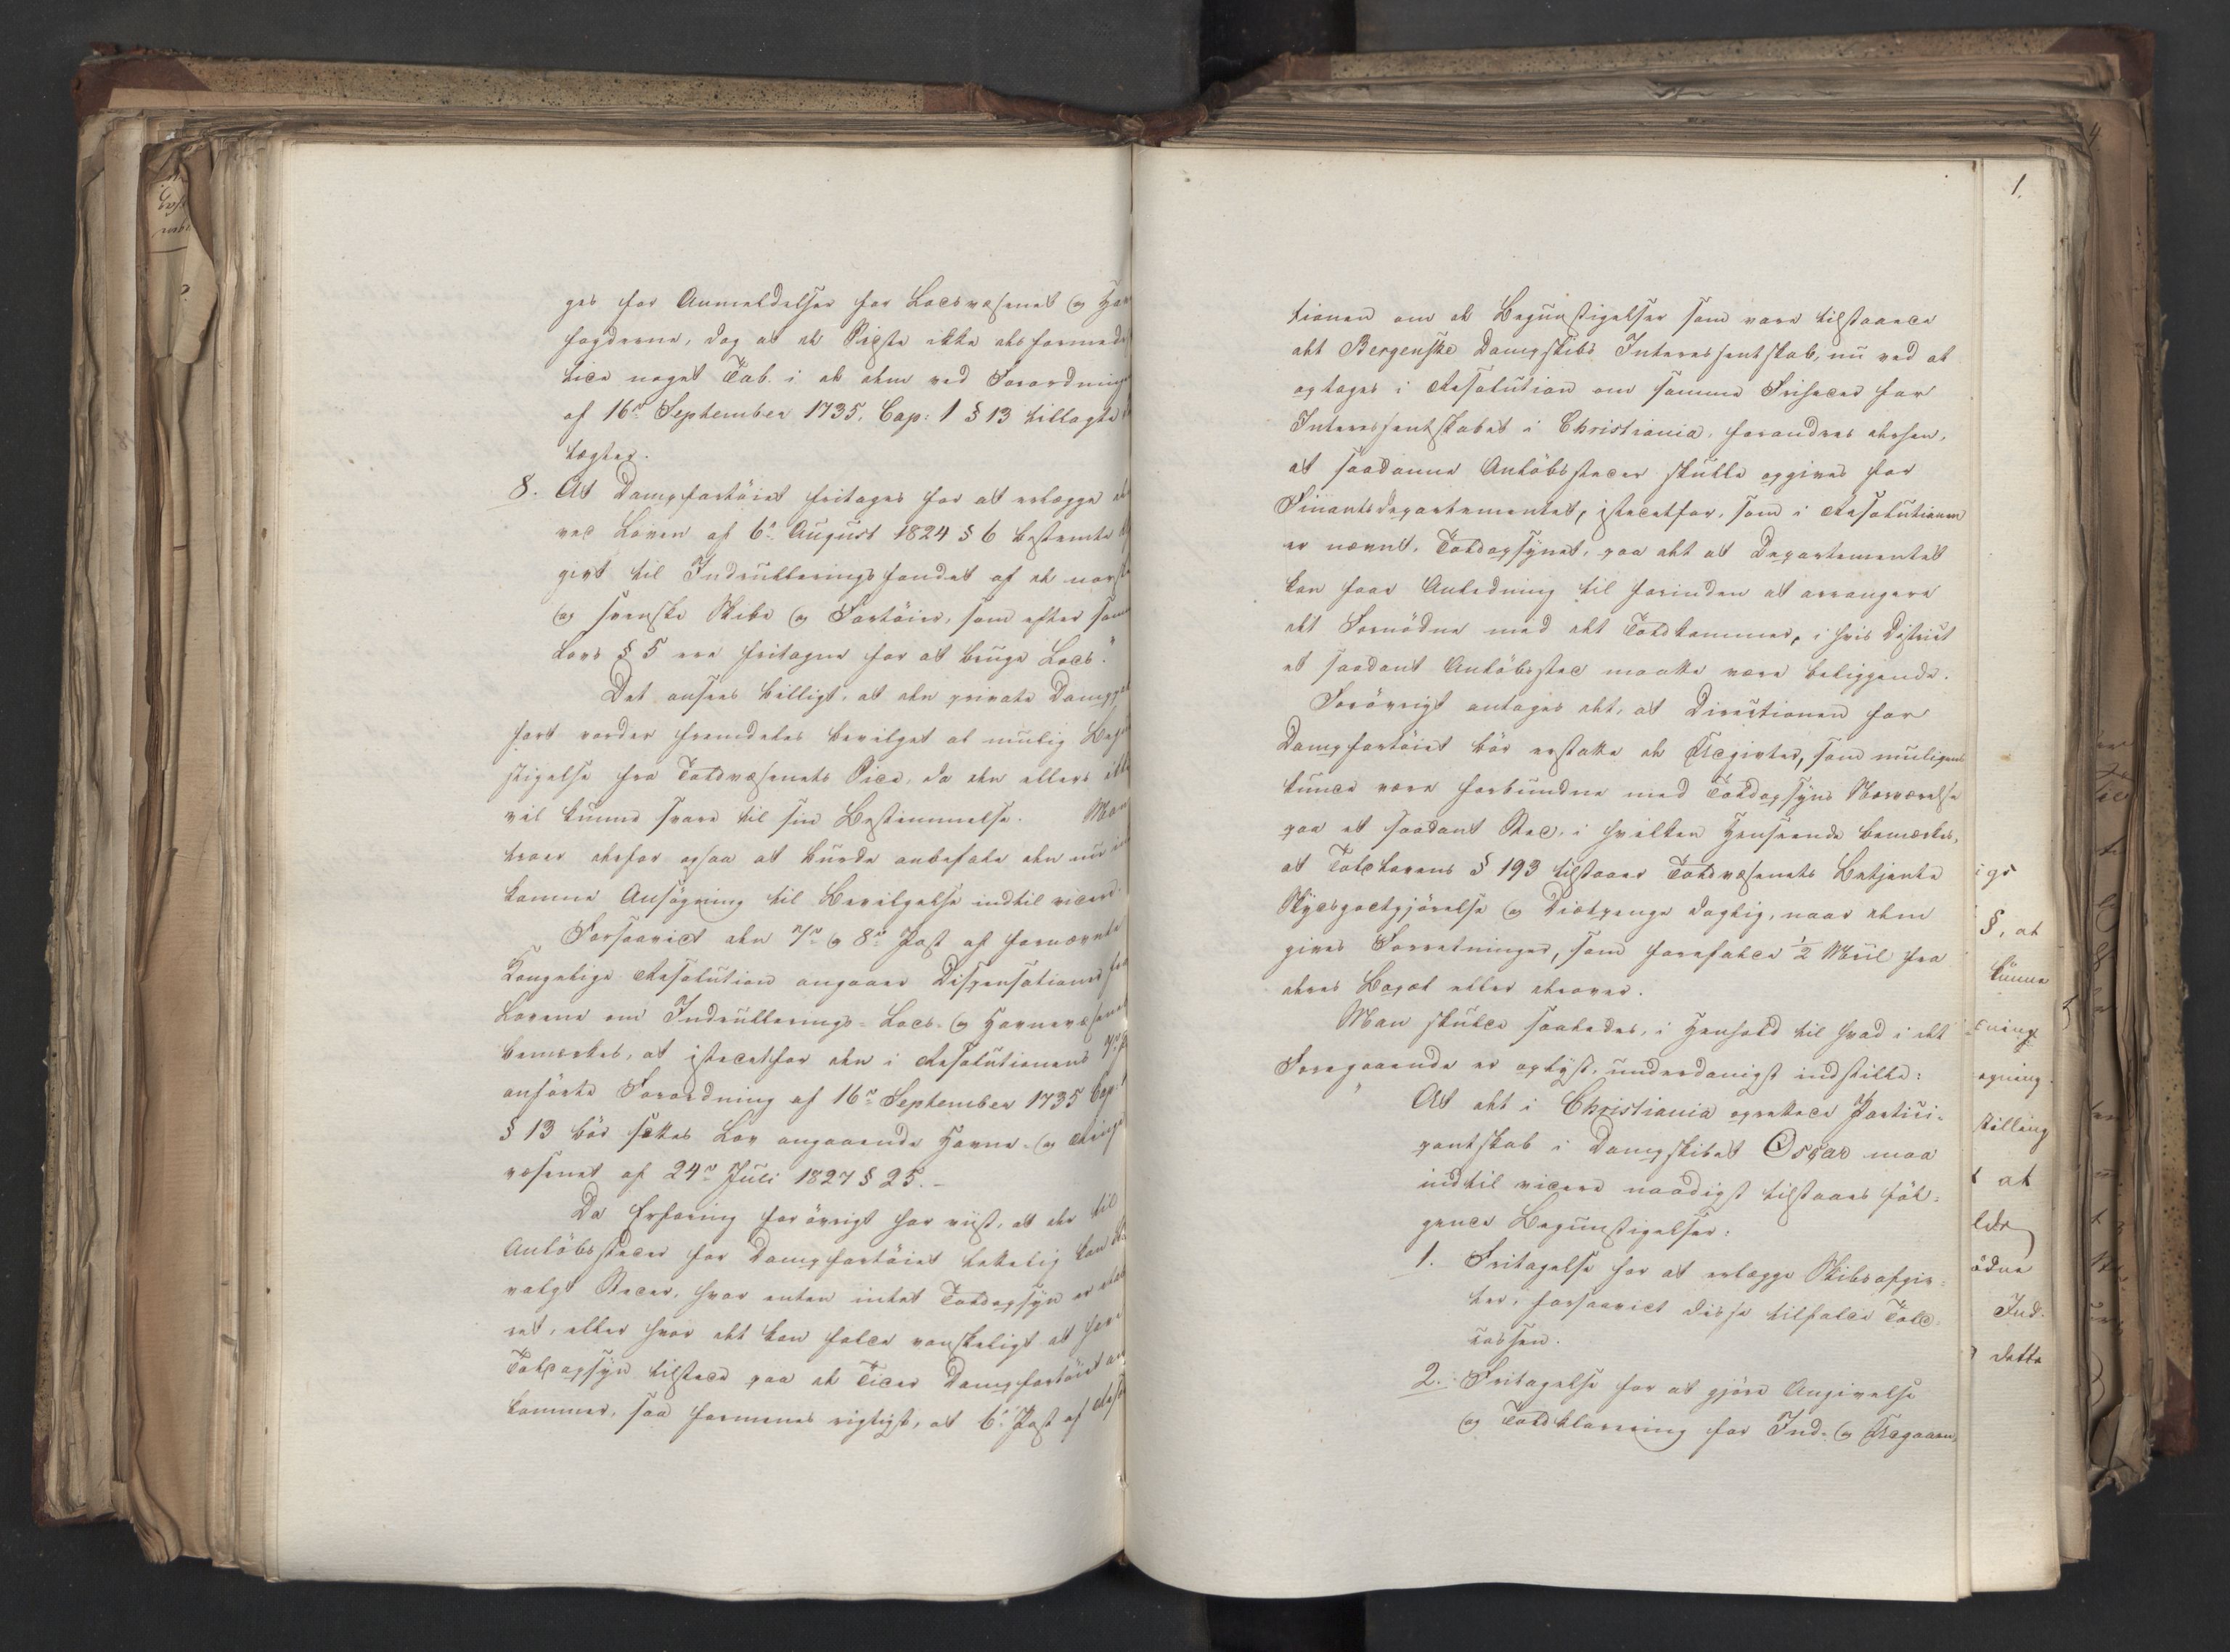 ges for Anmeldelser for Lodsvæsenet og Hav
fogderne, dog at de Sidste ikke derformedelst
lide noget Tab i de dem ved Forordning
af 16de September 1735. Cap: 1 § 13 tillagte
tægter.
8. At Dampfartöiet fritages for at erlægge
ved Loven af 6te August 1824 § 6 bestemte
givt til Indrulleringsfondet af de norske
og svenske Skibe og Fartöier, som efter samme
Lovs § 5 ere fritagne for at bruge Lods."
Det ansees billigt, at den private Damp-
fart vorder fremdeles bevilget al mulig Begun
stigelse fra Toldvæsenets Side, da den ellers ikke
vil kunne svare til sin Bestemmelse. Man
troer derfor ogsaa at burde anbefale den nu ind
komne Ansögning til Bevilgelse indtil videre.
Forsaavidt den 7de og 8de Post af fornævnte
Kongelige Resolution angaaer Dispensationer fra
Lovene om Indrullerings- Lods- og Havnevæsenet
bemærkes, at istedetfor den i Resolutionens 7de P
anförte Forordning af 16de September 1735 Cap. 1
§ 13 bör sættes Lov angaaende Havne- og Ringe
væsenet af 24de Juli 1827 § 25.-
Da Erfaring forövrigt har viist, at der til
Anlöbssteder for Dampfartöiet lettelig kan
valgt Steder, hvor enten intet Toldopsyn er etable
ret, eller hvor det kan falde vanskeligt at have
Toldopsyn tilstede paa de Tider Dampfartöiet an
kommer, saa formenes rigtigst, at 6te Post af Resolu
tionen om de Begunstigelser som vare tilstaaede
det Bergenske Dampskibs Interessentskab, nu ved at
optages i Resolution om samme Friheder for
Interessentskabet i Christiania, forandres derhen,
at saadanne Anlöbssteder skulle opgives for
Finantsdepartementet, istedetfor, som i Resolutionen
er nævnt, Toldopsynet, paa det at Departementet
kan faae Anledning til forinden at arrangere
det Fornödne med det Toldkammer, i hvis District
et saadant Anlöbssted maatte være beliggende.
Forövrigt antages det, at Directionen for
Dampfartöiet bör erstatte de Udgivter, som muligens
kunde være forbundne med Toldopsyns Nærværelse
paa et saadant Sted, i hvilken Henseende bemærkes,
at Toldlovens § 193 tilstaaer Toldvæsenets Betjente
Skydsgodtgjörelse og Diætpenge daglig, naar dem
gives Forretninger, som forefalde ½ Miil fra
deres Bopæl eller derover.
Man skulde saaledes, i Henhold til hvad i det
Foregaaende er oplyst, underdanigst indstille:
" At det i Christiania oprettede Partici-
pantskab i Dampskibet Oscar maa
indtil videre naadigst tilstaaes föl-
gende Begunstigelser:
1. Fritagelse for at erlægge Skibsafgiv-
ter, forsaavidt disse tilfalde Told-
cassen.
2. Fritagelse for at gjöre Angivelse
og Toldklarering for Ind- og Udgaaen,
1.
igs
§, at
kunne
ening
egning
stilling
t at
lder
ödne
Ind-
dette